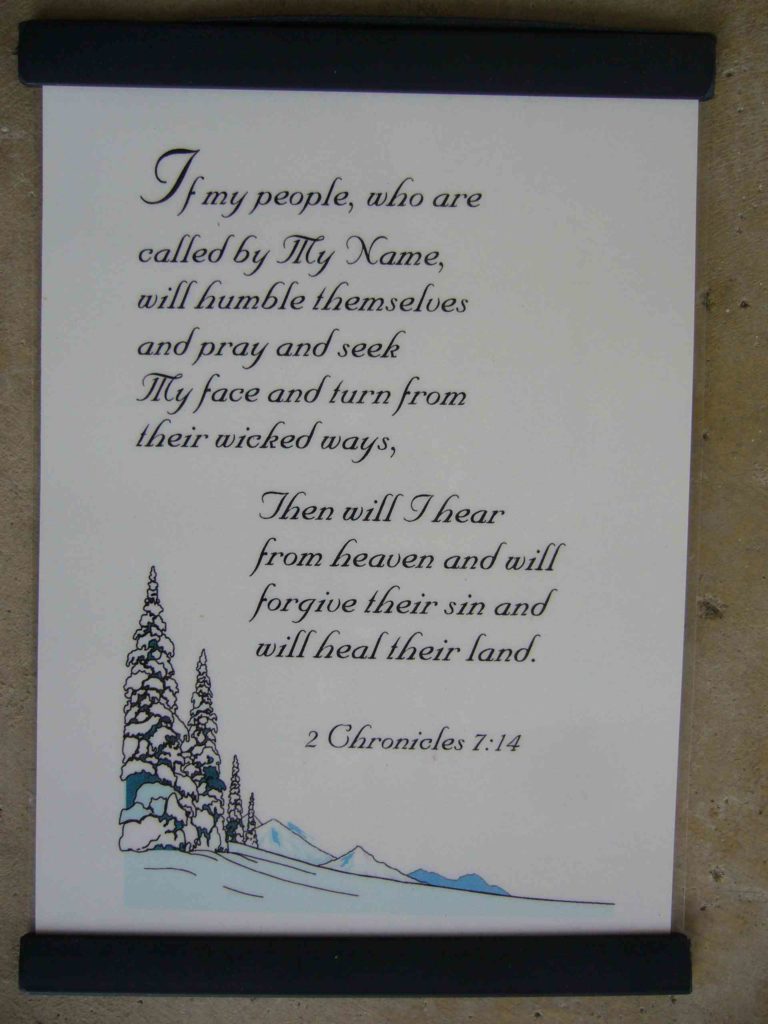 If my people, who are
called by My Name,
will humble themselves
and pray and seek
My face and turn from
their wicked ways,
Then will I hear
from heaven and will
forgive their sin and
will heal their land.
2 Chronicles 7:14